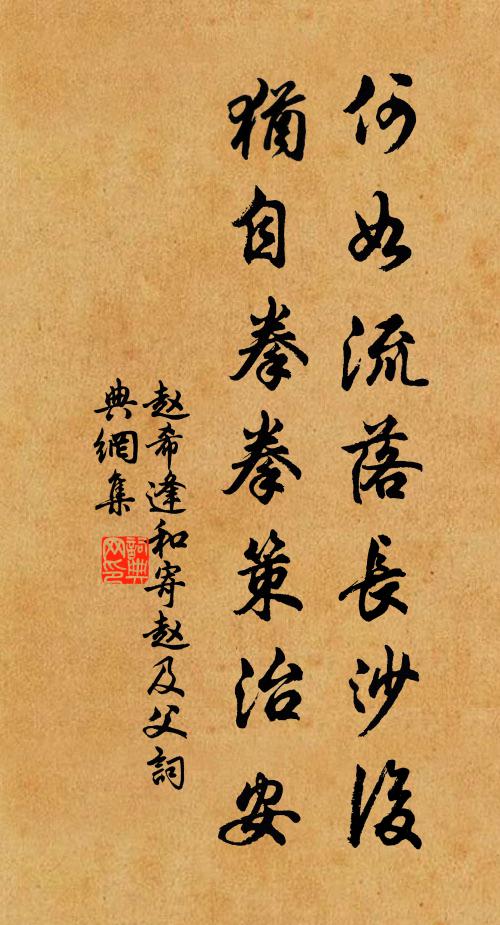 何如流落長沙後
猶自拳拳策治安
赵希逢和寄赵及父詞
典網集
詞典
网印